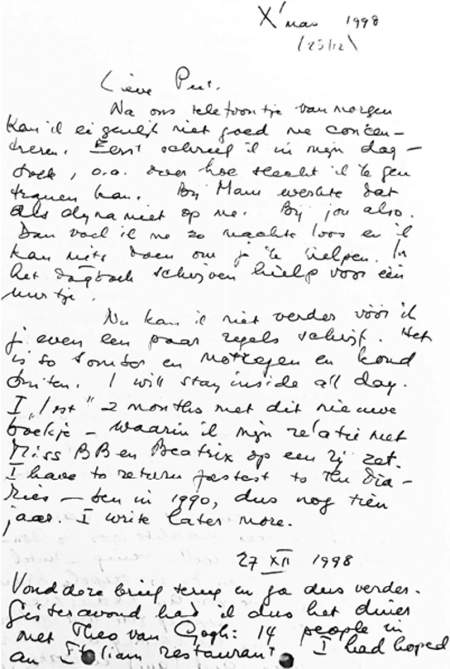 X'mas 1998
(25/12)
Lieve Peet.
Na ons telefoontje van morgen
kan ik eigenlijk niet goed me concen-
treren. Eerst schreef ik in mijn dag-
boek, o.a. over hoe slecht ik tegen
tranen kan. Bij Mam werkte dat
als dynamiet op me. Bij jou also.
Dan voel ik me zo machteloos en ik
kan niets doen om je te helpen. In
het dagboek schrijven hielp voor een
uurtje.
Nu kan ik niet verder vóór ik
je even een paar regels schrijf. Het
is zo somber en motregen en koud
buiten. I will stay inside all day.
I „lost" 2 months met dit nieuwe
boekje - waarin ik mijn relatie met
Miss BB en Beatrix op een rij zet.
I have to return fastest to the Dia-
ries - ben in 1990, dus nog tien
jaar. I write later more.
27 XII 1998
Vond deze brief terug en ga dus verder.
Gisteravond had ik dus het diner
met Theo van Gogh: 14 people in
an Italiam restaurant I had hoped